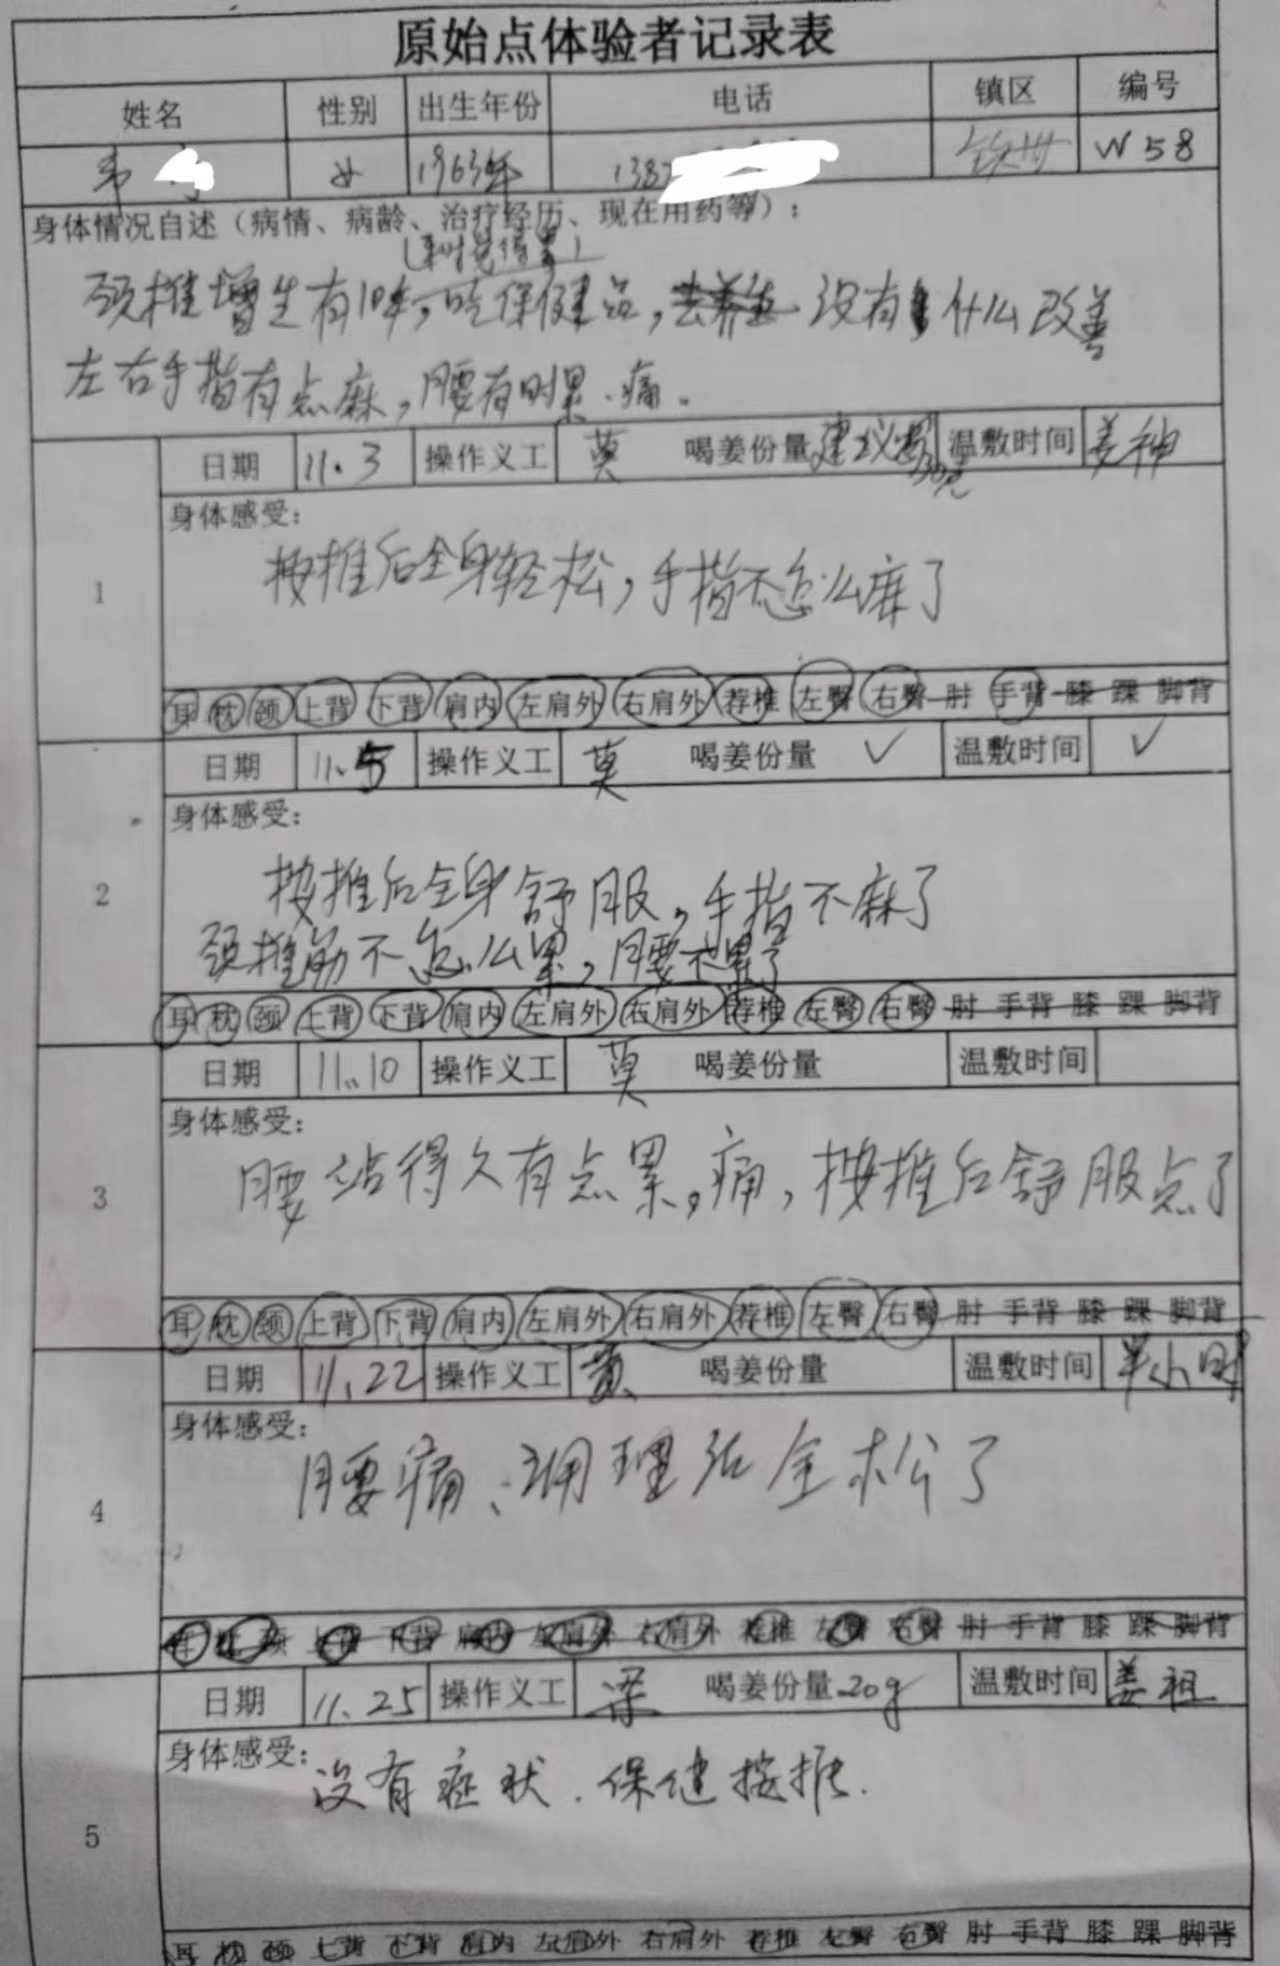 原始点体验者记录表
姓名 性别 出生年份 电话 镇区 编号
韦 女 1963年 138 W58
身体情况自述（病情、病龄、治疗经历、现在用药等）：
颈椎增生有10年，吃保健品，没有什么改善
左右手指有点麻，腰有时累、痛。
1
日期 11.3 操作义工 莫 喝姜份量 建议 温敷时间 姜神
身体感受：
按推后全身轻松，手指不怎么麻了
耳 枕 颈 上背 下背 肩内 左肩外 右肩外 荐椎 左臀 右臀 肘 手背 膝 踝 脚背
2
日期 11.5 操作义工 莫 喝姜份量 ✓ 温敷时间 ✓
身体感受：
按推后全身舒服，手指不麻了
颈椎前不怎么累，腰不累了
耳 枕 颈 上背 下背 肩内 左肩外 右肩外 荐椎 左臀 右臀 肘 手背 膝 踝 脚背
3
日期 11.10 操作义工 莫 喝姜份量 温敷时间
身体感受：
腰站得久有点累，痛，按推后舒服点了
耳 枕 颈 上背 下背 肩内 左肩外 右肩外 荐椎 左臀 右臀 肘 手背 膝 踝 脚背
4
日期 11.22 操作义工 黄 喝姜份量 温敷时间 半小时
身体感受：
腰痛、调理后全松了
耳 枕 颈 上背 下背 肩内 左肩外 右肩外 荐椎 左臀 右臀 肘 手背 膝 踝 脚背
5
日期 11.25 操作义工 梁 喝姜份量 20g 温敷时间 姜祖
身体感受：
没有症状．保健按推．
耳 枕 颈 上背 下背 肩内 左肩外 右肩外 荐椎 左臀 右臀 肘 手背 膝 踝 脚背